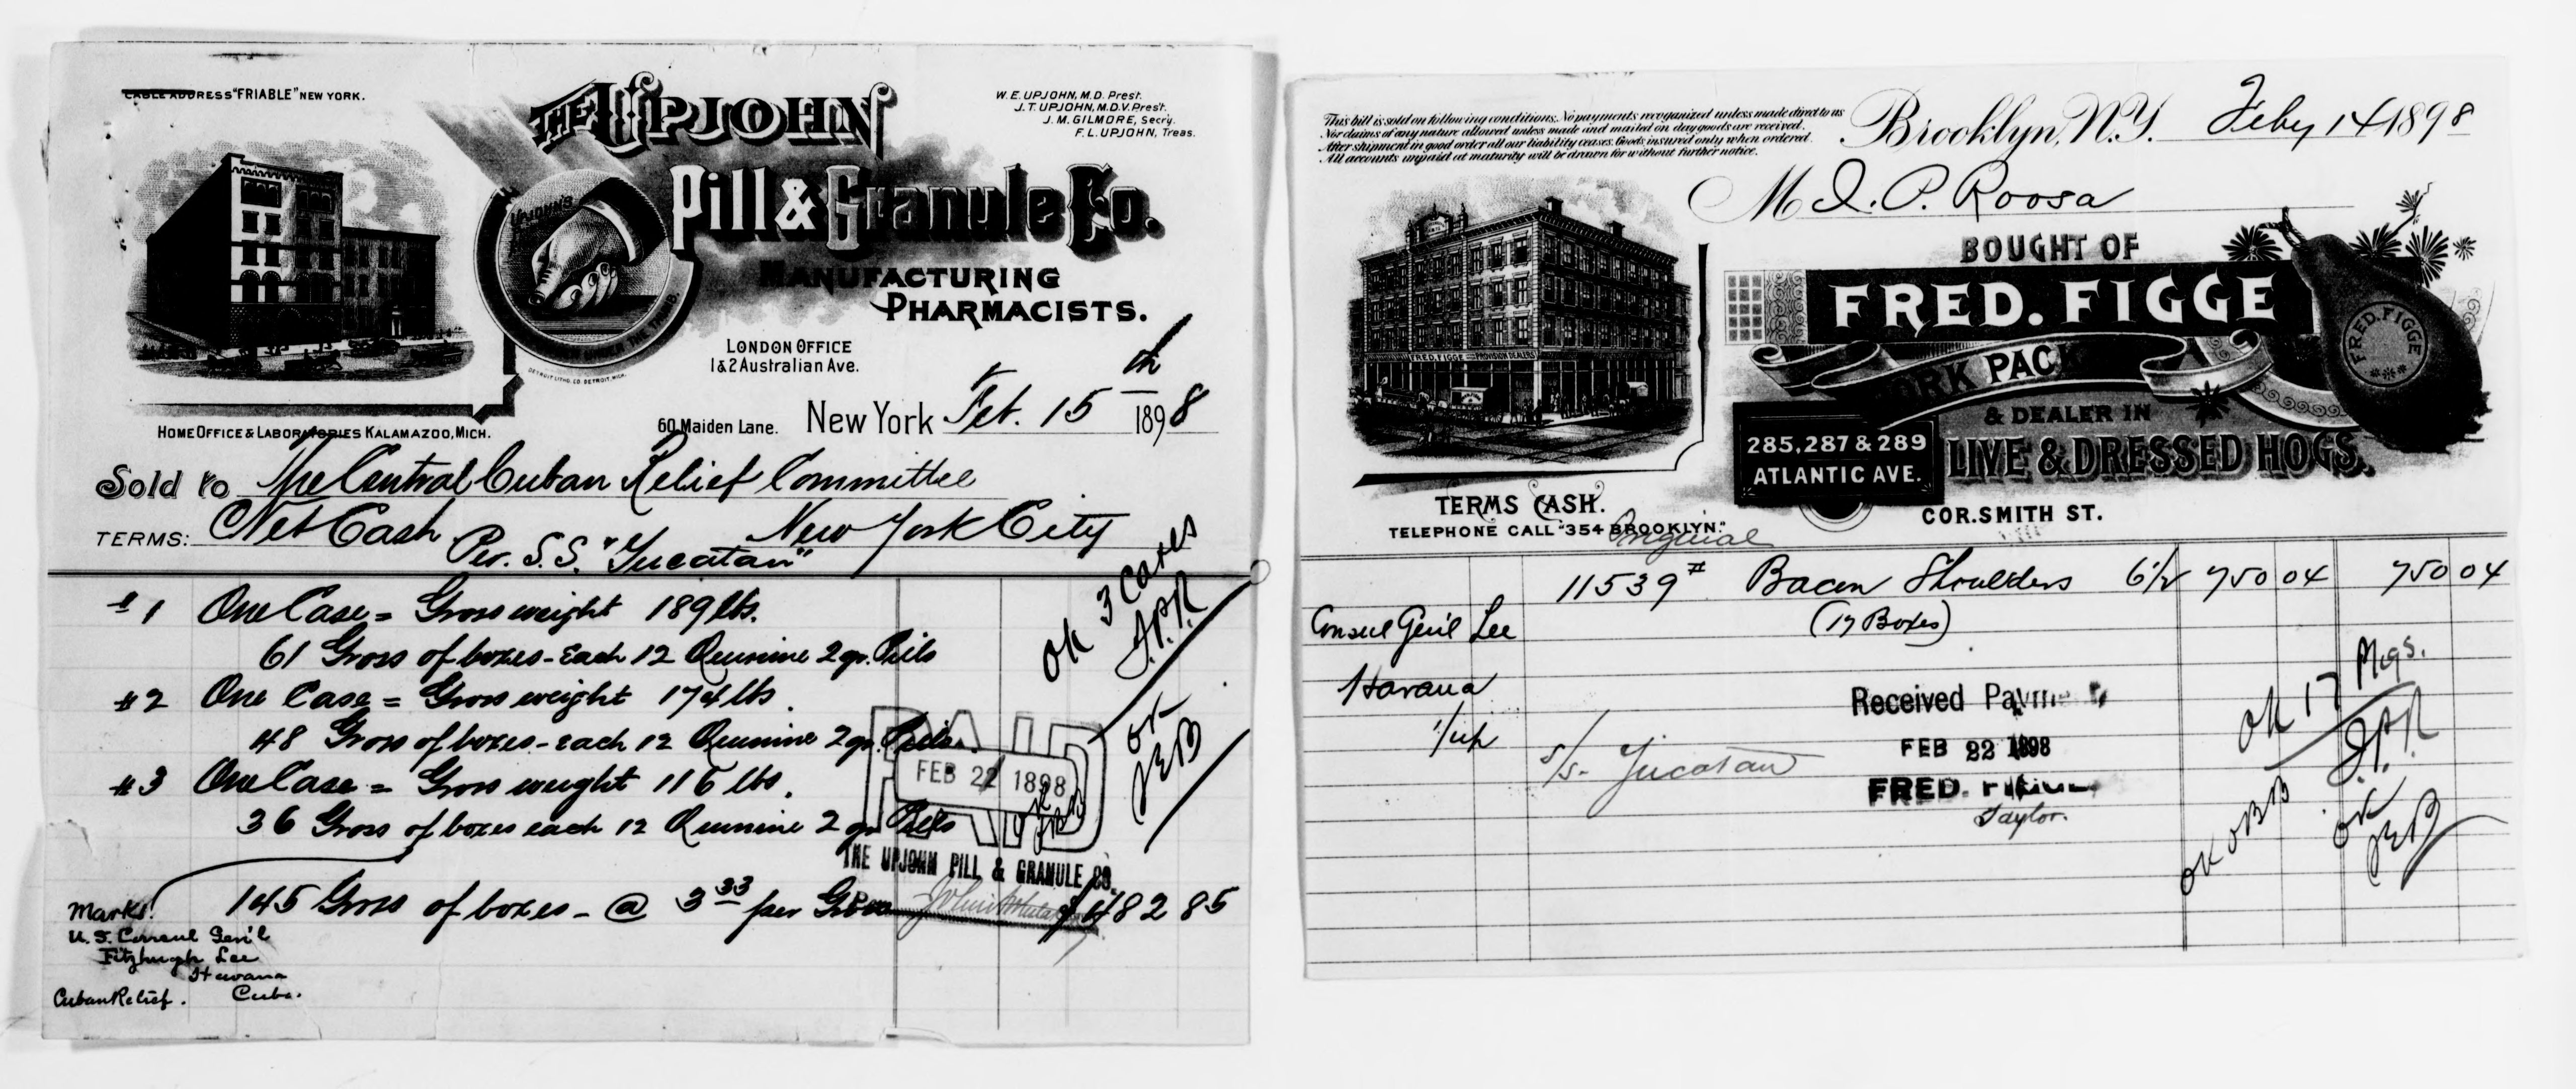 CABLE ADDRESS "FRIABLE" NEW YORK.
THE UPJOHN
Pill & Granule Co.
MANUFACTURING
PHARMACISTS.
W. E. UPJOHN, M.D. Prest.
J. T. UPJOHN, M.D. V. Prest.
J. M. GILMORE, Secry.
F. L. UPJOHN, Treas.
UPJOHN'S
UNDER THE THUMB.
DETROIT LITHO. CO. DETROIT, MICH.
LONDON OFFICE
1 & 2 Australian Ave.
HOME OFFICE & LABORATORIES KALAMAZOO, MICH.
60 Maiden Lane. New York Feb. 15th 1898
Sold to The Central Cuban Relief Committee
TERMS: Net Cash New York City
Per. S.S. "Yucatan"
#1 One Case = Gross weight 189 lbs.
61 Gross of boxes - Each 12 Quinine 2 gr. Pills
#2 One Case = Gross weight 174 lbs.
48 Gross of boxes - each 12 Quinine 2 gr. Pills.
#3 One Case = Gross weight 116 lbs.
36 Gross of boxes each 12 Quinine 2 gr Pills
145 Gross of boxes - @ 3 33 per Gross $482 85
OK 3 Cases
J.P.R.
OK
PAID
FEB 21 1898
THE UPJOHN PILL & GRANULE CO.
Marks!
U. S. Consul Gen'l
Fitzhugh Lee
Havana
Cuban Relief. Cuba.
This bill is sold on following conditions. No payments recoganized unless made direct to us
Nor claims of any nature allowed unless made and mailed on day goods are received.
After shipment in good order all our liability ceases. Goods insured only when ordered.
All accounts unpaid at maturity will be drawn for without further notice.
Brooklyn, N.Y. Feby 14 1898
M J. P. Roosa
BOUGHT OF
FRED. FIGGE
PORK PACK
& DEALER IN
LIVE & DRESSED HOGS.
285, 287 & 289
ATLANTIC AVE.
COR. SMITH ST.
FRED. FIGGE
FRED. FIGGE PROVISION DEALER
TERMS CASH.
TELEPHONE CALL "354 BROOKLYN."
Original
11539# Bacon Shoulders 6 1/2 750 04 750 04
(17 Boxes)
Consul Gen'l Lee
Havana
1/up
S/S. Yucatan
Received Payment
FEB 22 1898
FRED. FIGGE
Taylor.
OK 17 Pkgs.
J.P.R.
OK